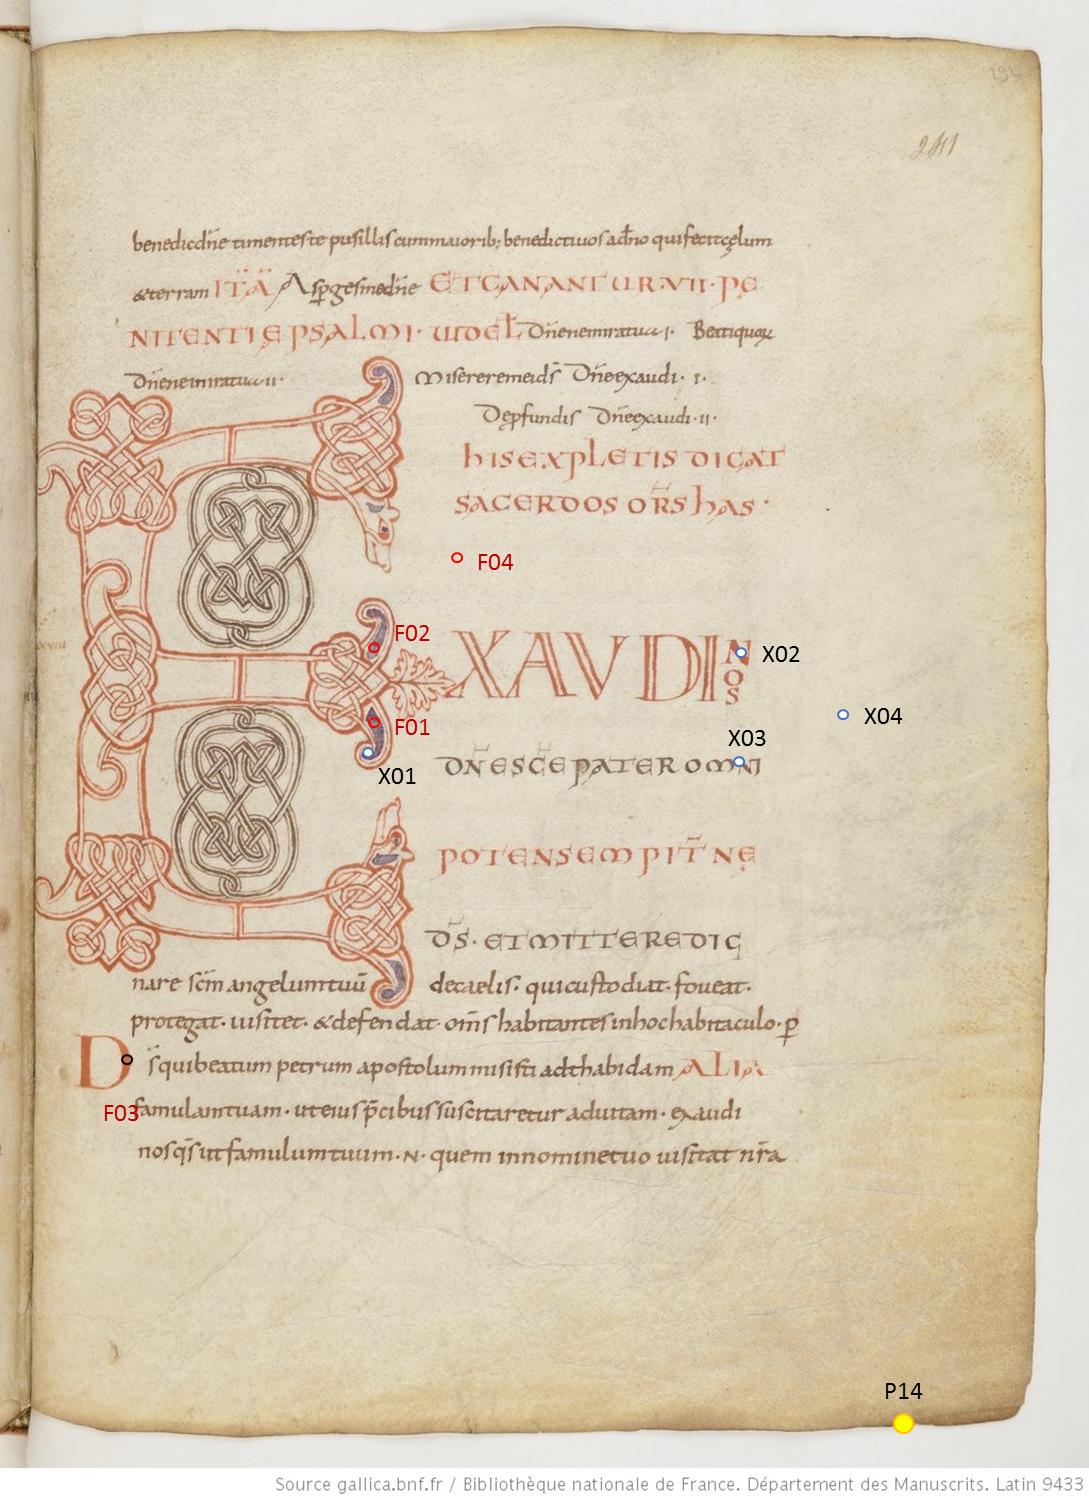 241
benedic dn̄e timentes te pusillis cum maiorib; benedicti vos a dn̄o qui fecit cęlum
& terram ITĀ Asp̄ges me dn̄e ET CANANTUR VII · PE
NITENTIĘ PSALMI · UIDEL̄ Dn̄e ne in ira tua · I · Beati quoꝝ
Dn̄e ne in ira tua · II · Miserere mei dṣ̄ Dn̄e exaudi · I ·
De p̄fundis Dn̄e exaudi · II ·
HIS EXPLETIS DICAT
SACERDOS OR̄S HAS ·
F04
F02
EXAUDI NOS
X02
F01
X04
X03
X01
DN̄E SC̄E PATER OMNI
POTENS SEMPIT̄NE
D̄S · ET MITTERE DIG
nare sc̄m angelum tuū de caelis · qui custodiat · foveat ·
protegat · visitet · & defendat · om̄s habitantes in hoc habitaculo · p̄
Ds̄ qui beatum petrum apostolum misisti ad thabidam ALIA
F03
famulam tuam · ut eius p̄cibus suscitaretur ad vitam · exaudi
nos qs̄ ut famulum tuum · N · quem in nomine tuo visitat nr̄a
P14
Source gallica.bnf.fr / Bibliothèque nationale de France. Département des Manuscrits. Latin 9433